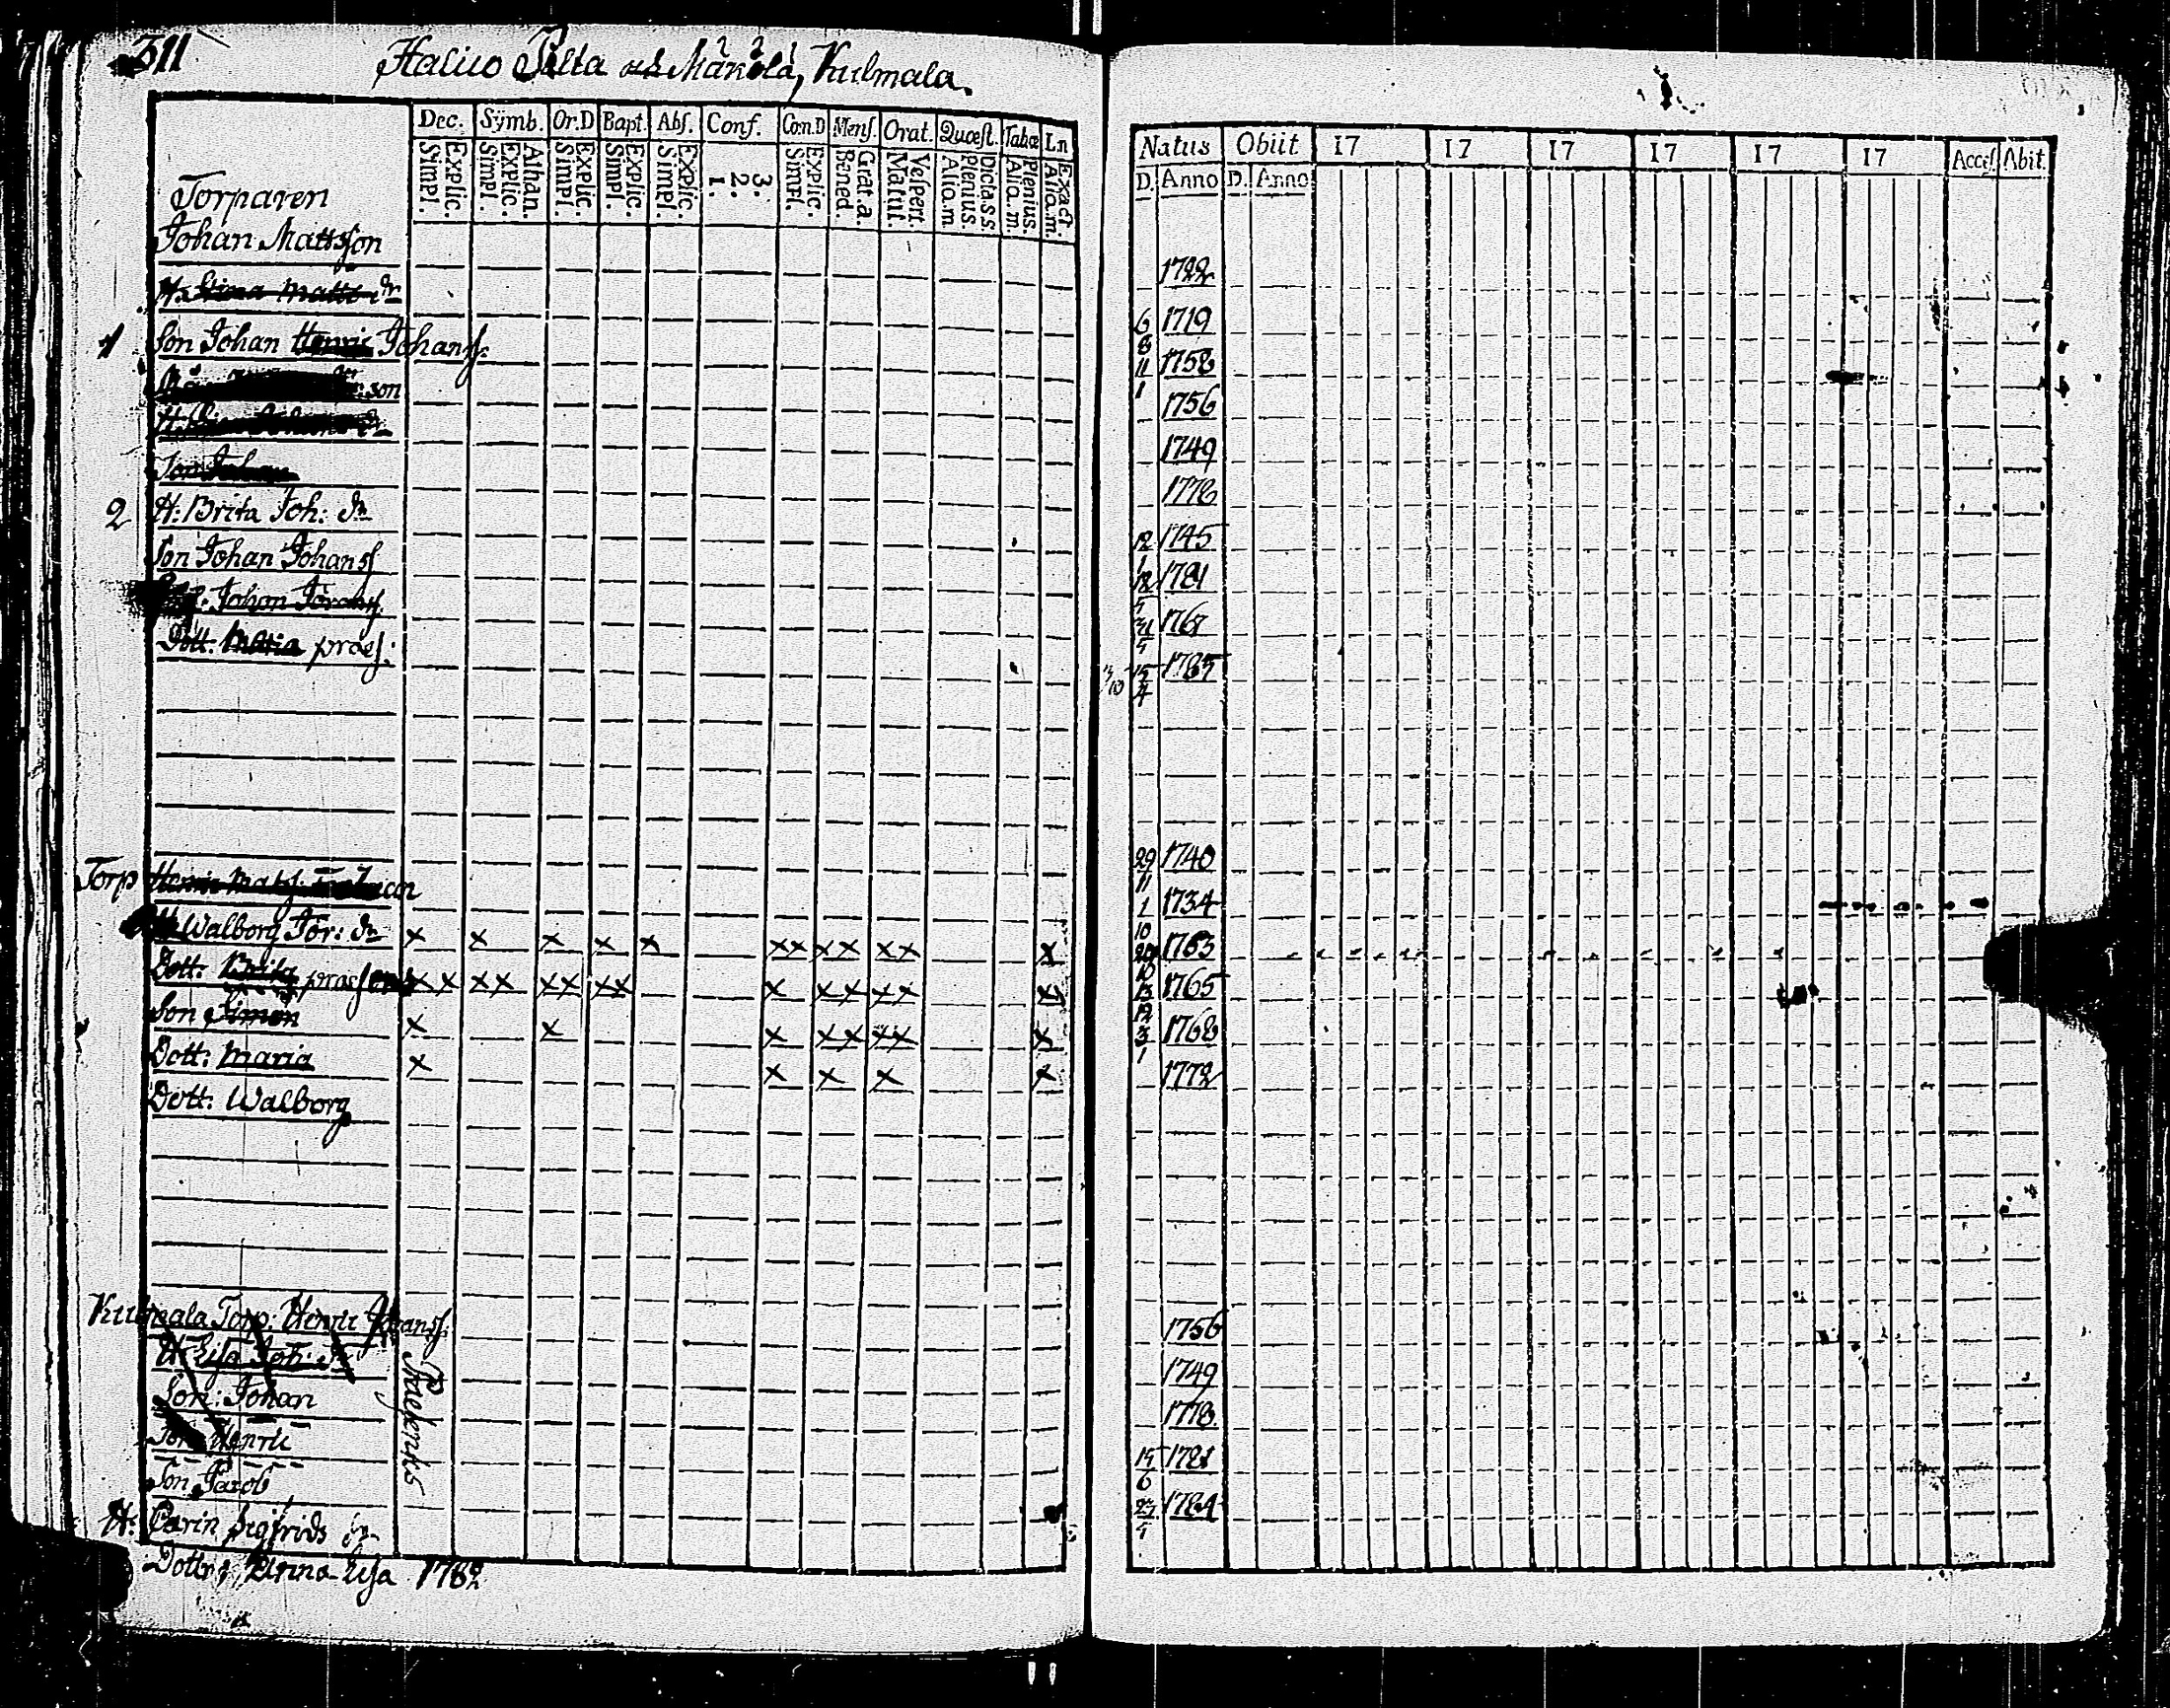 311
Haliuo Pelta och Mänölä, Kulmala.
Dec. Symb. Or.D Bapt. Abs. Conf. Com.D Mens. Orat. Quæst. Tabæ Ln
Explic. Simpl. Athan. Explic. Simpl. Explic. Simpl. Explic. Simpl. Explic. Simpl. 3. 2. 1. Explic. Simpl. Grat.a. Bened. Vespert. Matut. Dicta.s.s. Plenius. Aliq.m Plenius. Aliq.m. Exact. Aliq.m.
Natus Obiit 17 17 17 17 17 17 Acces Abit.
D. Anno D. Anno
Torparen
Johan Mattsson 1722
H. Stina Matts dr 6 8 1719
1 Son Johan Henric Johanss: 11 1 1758
son 1756
H. dr 1749
Son Johan 1778
2 H: Brita Joh: dr 12 1 1745
Son Johan Johanss 1781
Johan Jöranss. 1767
Dott. Maria præs: 15 4 1785
Torp Henric Matss. 29 11 1740
Walborg Jör: dr x x x x x xx xx xx x 1 10 1734
Dott: Brita præsens xx xx xx xx x xx xx xx 1763
Son Simon x x x xx xx x 13 12 1765
Dott: Maria x x x x x 3 1 1768
Dott: Walborg 1772
Kulmala Torp: Henric Joranss: 1756
H. Lisa Joh: dr 1749
Son: Johan 1778.
Son Henric 15 6 1781
Son Jacob 27 1784
Præsenks
H: Carin Sigfrids dr
Dotter Anna Lisa 1782